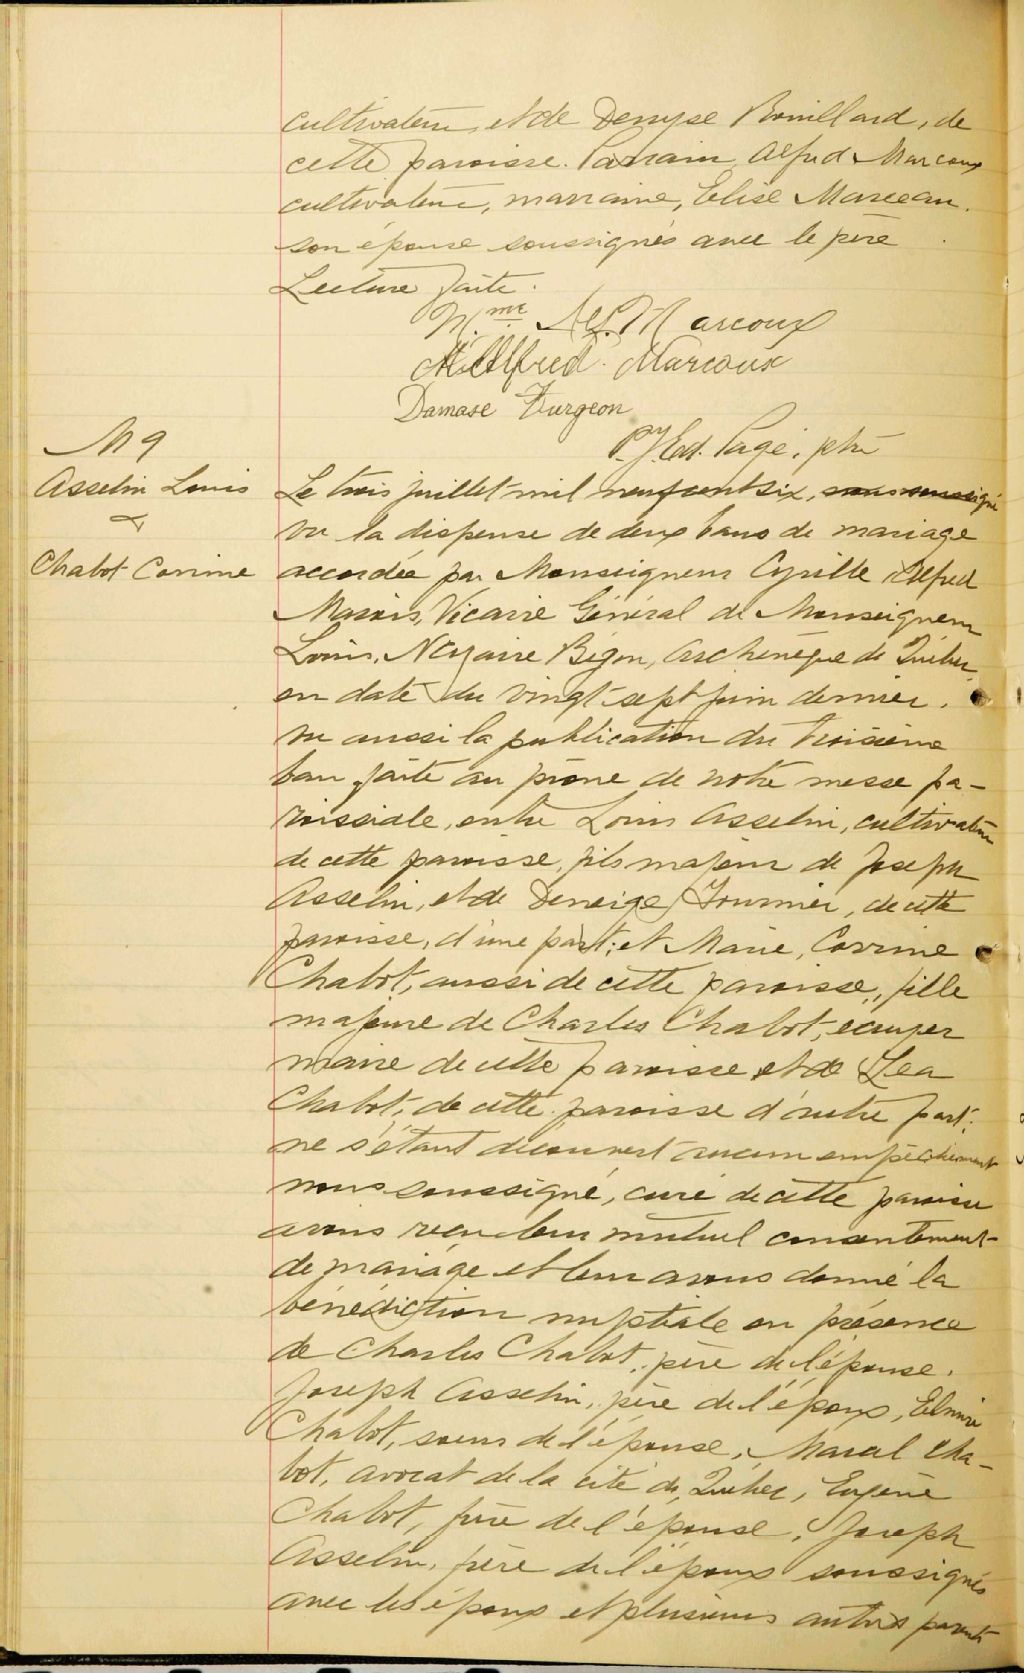 cultivateur, et de Denyse Rouillard, de
cette paroisse. Parrain Alfred Marcoux
cultivateur, marraine, Elise Marceau.
son épouse soussignés avec le père
Lecture faite.
M.me Alf. Marcoux
Alfred Marcoux
Damase Turgeon
Ed. Pagé, ptre
M 9
Asselin Louis
&
Chabot Corinne
Le trois juillet mil neuf cent six, nous soussigné
vu la dispense de deux bans de mariage
accordée par Monseigneur Cyrille Alfred
Marois, Vicaire Général de Monseigneur
Louis, Nazaire Bégin, archevêque de Québec,
en date du vingt-sept juin dernier.
vu aussi la publication du troisième
ban faite au prône de notre messe pa-
roissiale, entre Louis Asselin, cultivateur
de cette paroisse, fils majeur de Joseph
Asselin, et de Deneige Fournier, de cette
paroisse, d'une part; et Marie, Corrine
Chabot, aussi de cette paroisse, fille
majeure de Charles Chabot, écuyer
maire de cette paroisse et de Lea
Chabot, de cette paroisse d'autre part;
ne s'étant découvert aucun empêchement
nous soussigné, curé de cette paroisse
avons reçu leur mutuel consentement
de mariage et leur avons donné la
bénédiction nuptiale en présence
de Charles Chabot, père de l'épouse,
Joseph Asselin, père de l'époux, Elmire
Chabot, soeur de l'épouse, Marcel Cha-
bot, avocat de la cité de Québec, Eugène
Chabot, frère de l'épouse, Joseph
Asselin, frère de l'époux soussignés
avec les époux et plusieurs autres parents